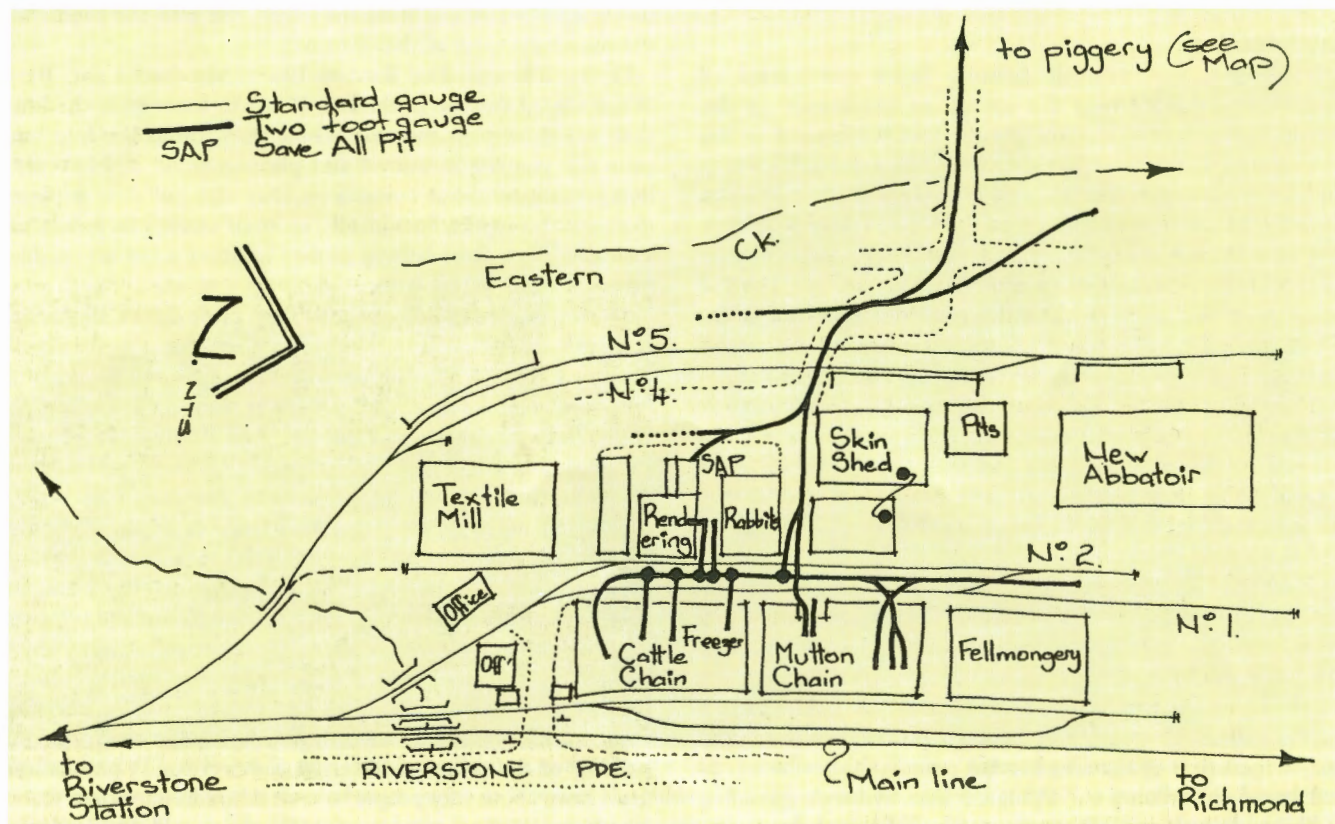 to piggery (see Map)
Standard gauge
Two foot gauge
SAP Save All Pit
Eastern Ck.
N
N.T.S.
Nº5.
Nº4.
Textile Mill
SAP
Rendering
Rabbits
Skin Shed
Pits
New Abbatoir
Nº2.
Nº1.
Office
Off?
Cattle Chain
Freezer
Mutton Chain
Fellmongery
to Riverstone Station
RIVERSTONE PDE.
Main line
to Richmond